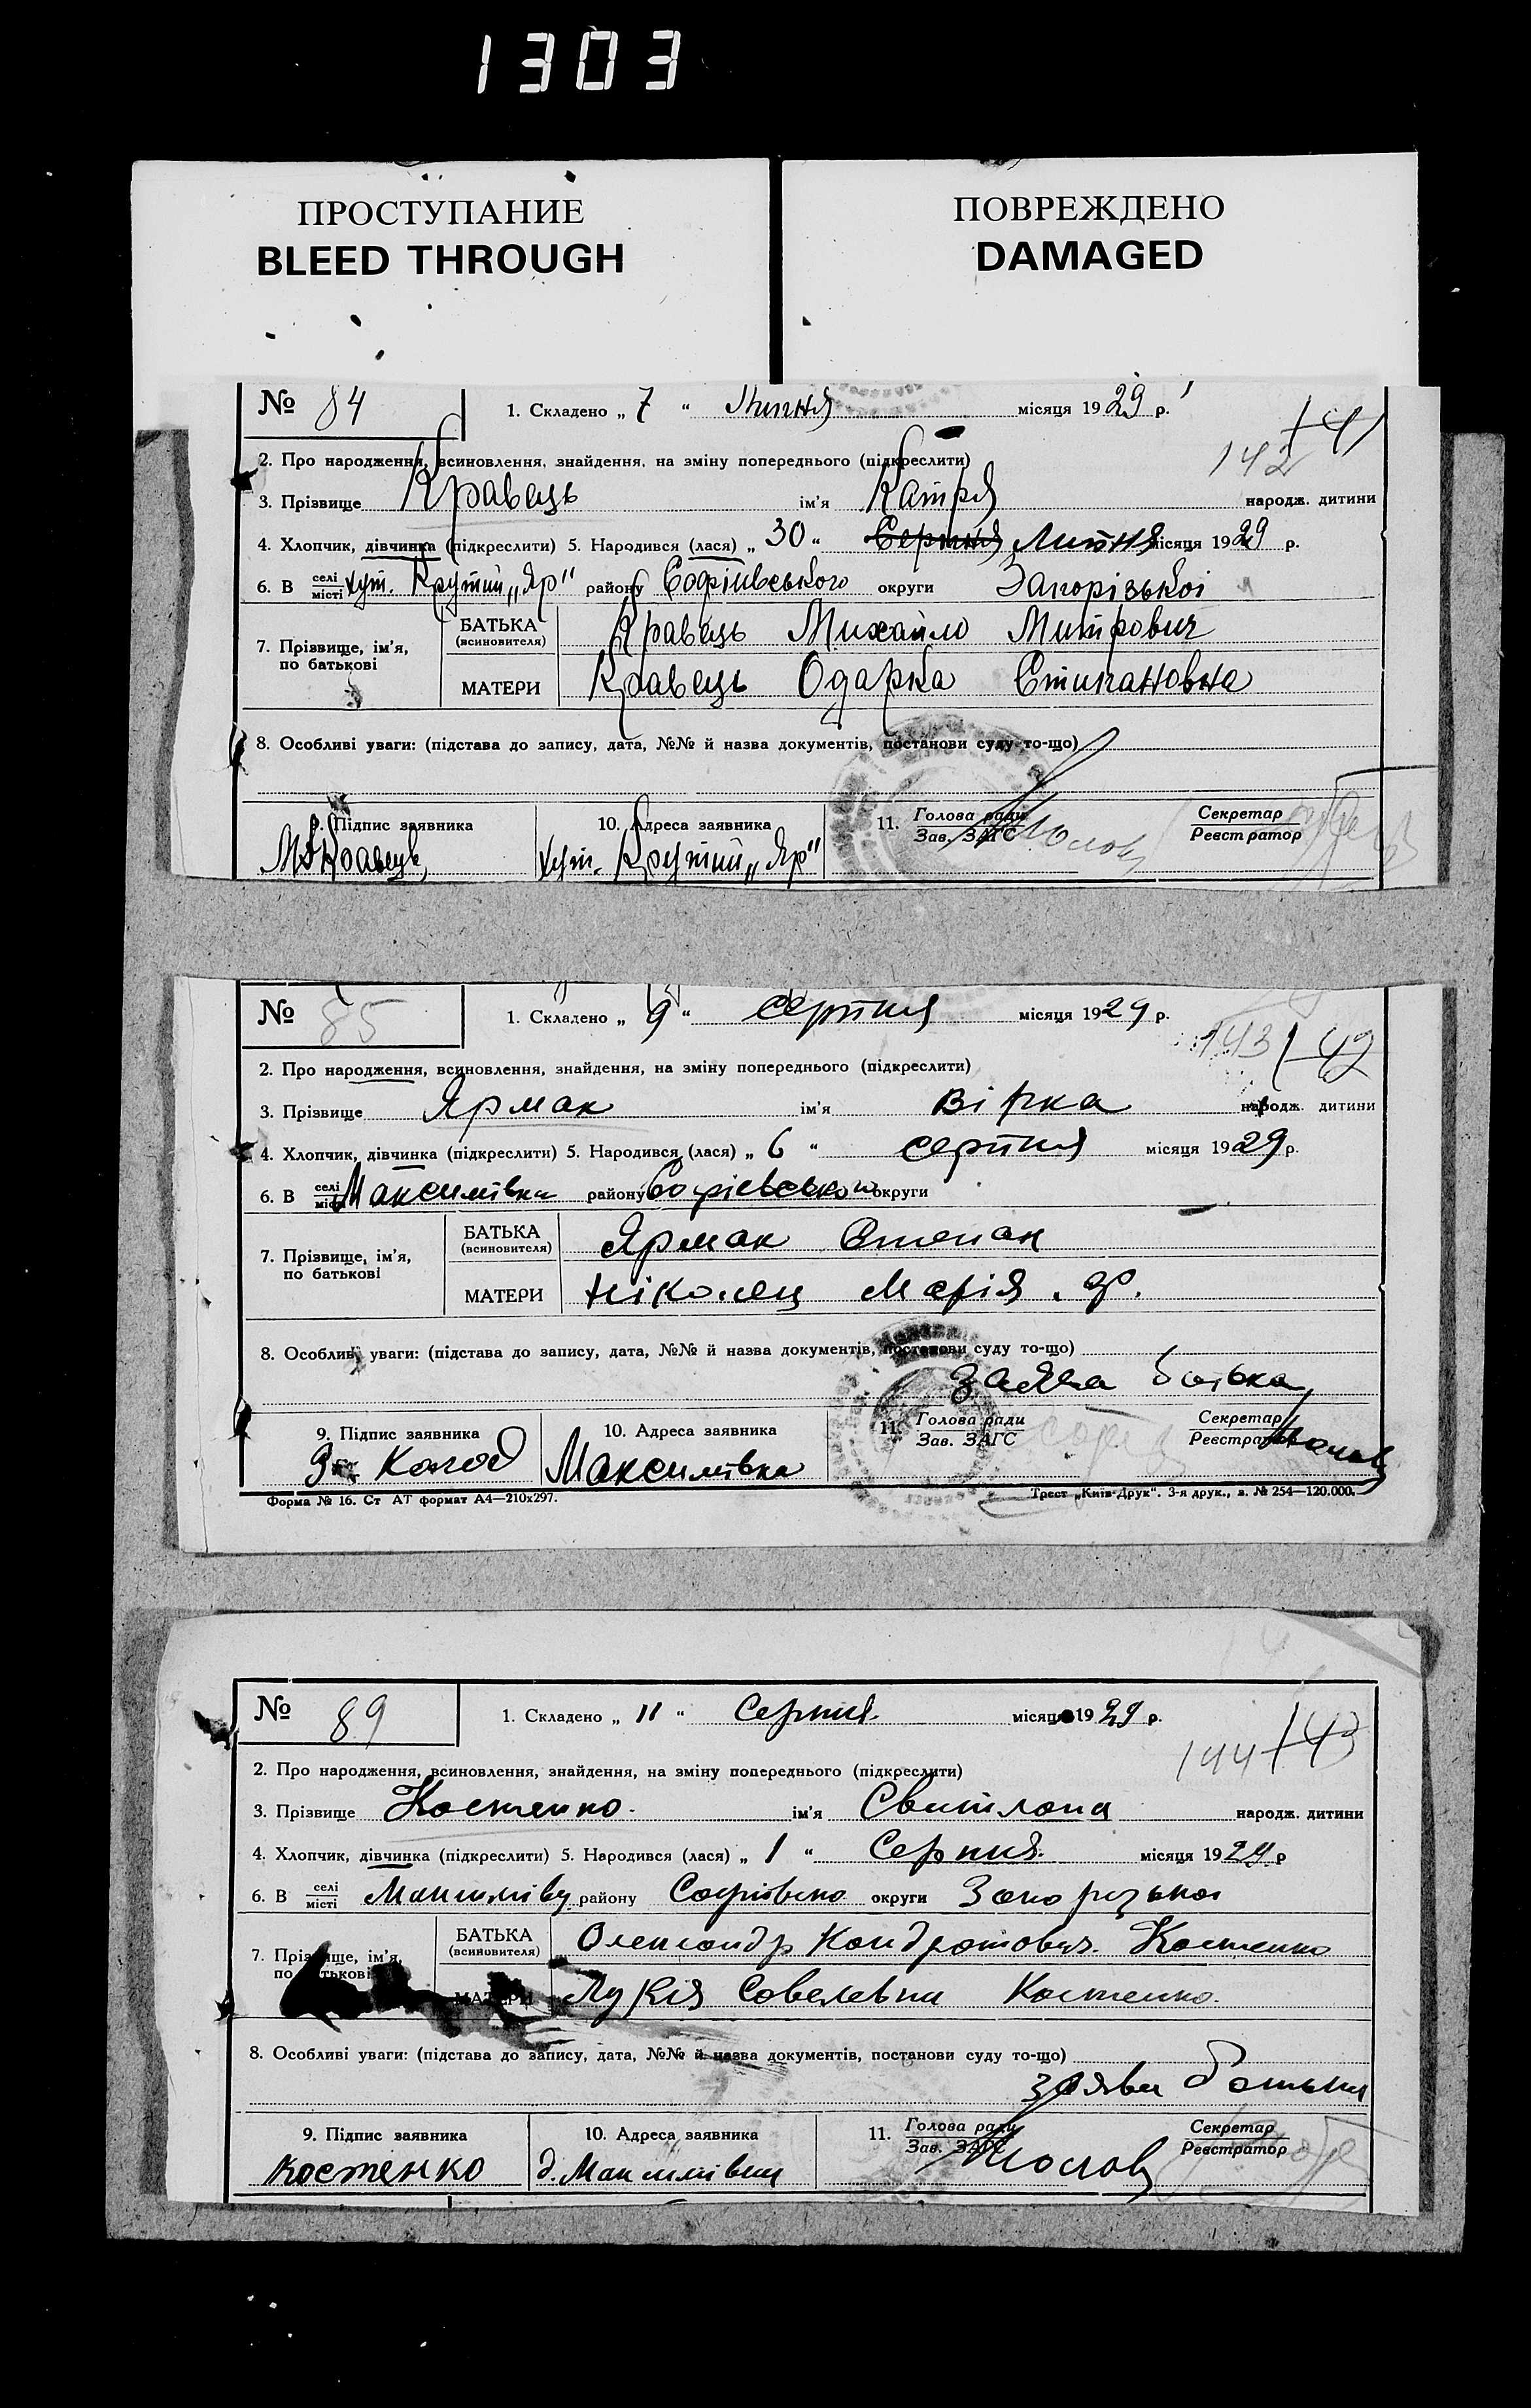 1303
ПРОСТУПАНИЕ
BLEED THROUGH
ПОВРЕЖДЕНО
DAMAGED
№ 84
1. Складено „ 7 “ Липня місяця 1929 р.
142
141
2. Про народження, всиновлення, знайдення, на зміну попереднього (підкреслити)
3. Прізвище Кравець ім'я Катря народж. дитини
4. Хлопчик, дівчинка (підкреслити) 5. Народився (лася) „ 30 “ Серпня Липня місяця 1929 р.
6. В селі/місті хут. Крутий „Яр" району Софіївського округи Запорізької
7. Прізвище, ім'я, по батькові
БАТЬКА (всиновителя) Кравець Михайло Митрович
МАТЕРИ Кравець Одарка Стипановна
8. Особливі уваги: (підстава до запису, дата, №№ й назва документів, постанови суду то-що)
9. Підпис заявника
10. Адреса заявника
11. Голова ради
Зав. ЗАГС
Секретар
Реєстратор
Кравець
хут. Крутий „Яр"
№ 85
1. Складено „ 9 “ серпня місяця 1929 р.
143
142
2. Про народження, всиновлення, знайдення, на зміну попереднього (підкреслити)
3. Прізвище Ярмак ім'я Вірка народж. дитини
4. Хлопчик, дівчинка (підкреслити) 5. Народився (лася) „ 6 “ серпня місяця 1929 р.
6. В селі/місті Максимівка району Софієвсько округи
7. Прізвище, ім'я, по батькові
БАТЬКА (всиновителя) Ярмак Степан
МАТЕРИ Ніколец Марія . Ф.
8. Особливі уваги: (підстава до запису, дата, №№ й назва документів, постанови суду то-що)
заява батька
9. Підпис заявника
10. Адреса заявника
11. Голова ради
Зав. ЗАГС
Секретар
Реєстратор
Максимівка
Форма № 16. Ст АТ формат А4—210х297.
Трест „Київ-Друк". 3-я друк., з. № 254—120.000.
№ 89
1. Складено „ 11 “ Серпня. місяця 1929 р.
144
143
2. Про народження, всиновлення, знайдення, на зміну попереднього (підкреслити)
3. Прізвище Костенко. ім'я Свитлана народж. дитини
4. Хлопчик, дівчинка (підкреслити) 5. Народився (лася) „ 1 “ Серпня. місяця 1929 р
6. В селі/місті Максимівц району Софіївсько округи Запорізької
7. Прізвище, ім'я, по батькові
БАТЬКА (всиновителя) Олександр Кондратович. Костенко
МАТЕРИ Лукія Савелевна Костенко.
8. Особливі уваги: (підстава до запису, дата, №№ й назва документів, постанови суду то-що)
заява батька
9. Підпис заявника
10. Адреса заявника
11. Голова ради
Зав. ЗАГС
Секретар
Реєстратор
Костенко
д. Максимівка